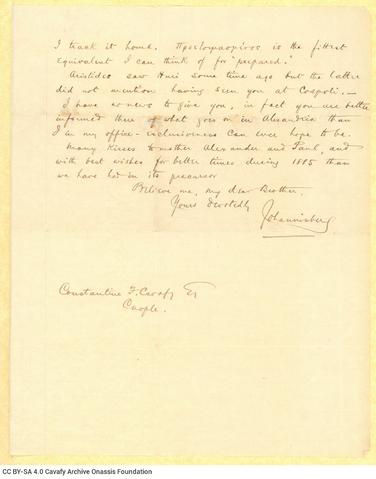 I track it home. Προετοιμασμένος is the fittest
equivalent I can think of for "prepared."
Aristides saw Nuri some time ago but the latter
did not mention having seen you at Cospoli. —
I have no news to give you, in fact you are better
informed there of what goes on in Alexandria than
I in my office-exclusiveness can ever hope to be.
Many kisses to mother Alexander and Paul, and
with best wishes for better times during 1885 than
we have had in its precursor
Believe me, my dear Brother,
Yours devotedly
Constantine F. Cavafy Esq
Cnople.
CC BY-SA 4.0 Cavafy Archive Onassis Foundation